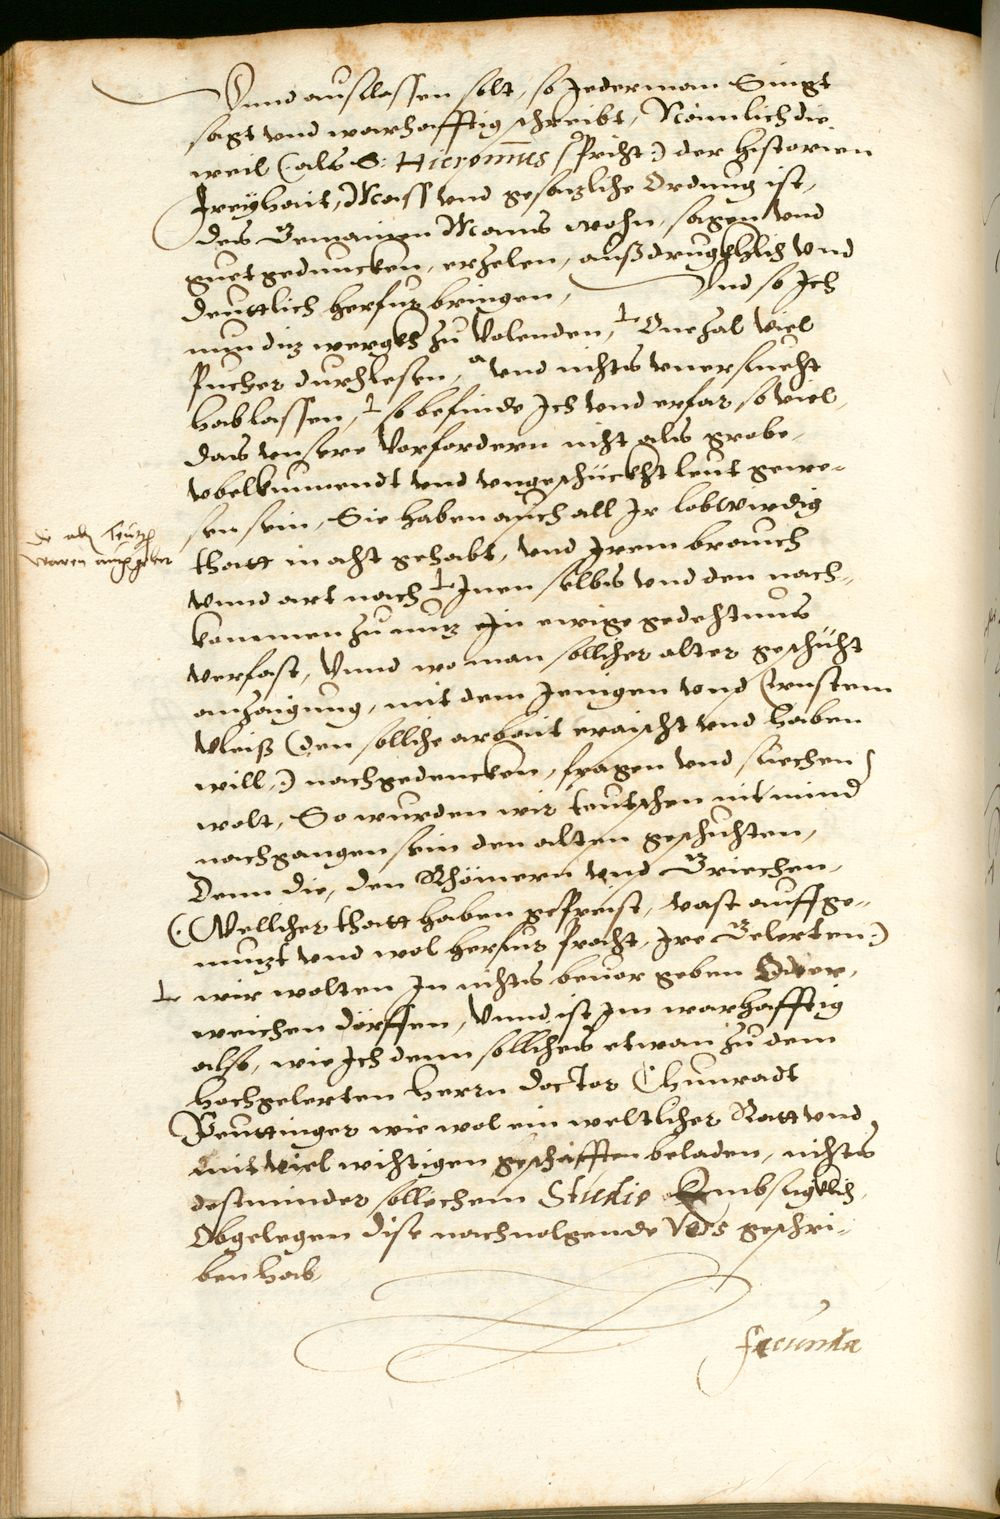 Vnnd auslassen solt, so Jederman Singt
sagt vnd warhafftig schreibt, Nämlich die
weil (: als S: Hieronimus spricht :) der historien
Freyhait, Mass vnd gesazliche Ordnung ist,
des Gemainen Mans wohn, sagen vnd
guetgeduncken, erzelen, außdrugkhlich vnd
deuttlich herfur bringen, Vnd so Jch
nun diz wergkh zu Volenden, Onezal viel
Puecher durchlesen, vnd nichts vnersuecht
hab lassen, so befinde Jch vnd erfar so viel,
das vnsere Vorfordern nicht als grobe,
vbelkunnendt vnd vngeschückht leut gewe-
sen sein, Sie haben auch all Jr lobwirdig
thatt in acht gehabt, vnd Jrem brauch
die alten Teutschen
waren
vnnd art nach Jnen selbs vnd den nach-
kommen zu nuz ein ewige gedechtnus
verfast, Vnnd wo man sollicher alter geschicht
anzaigung, mit dem Jenigen vnd Ernstem
Vleiß (den solliche arbait eraischt vnd haben
will,:) nachgedencken, fragen vnd suechen
wolt, So wurden wir teutschen nit mind
nachgangen sein den alten geschichten,
Denn die, den Rhömern vnd Griechen,
(: Wellicher thatt haben gepreist, vast auffge-
muzt vnd wol herfur pracht, Jre Gelerten :)
wir wolten Jn nichts beuor geben Oder,
weichen dörffen, Vnnd ist Jm warhafftig
also, wie Jch denn solliches etwan zu dem
hochgelerten herrn doctor Chunradt
Peuttinger wie wol ein weltlicher Ratt vnd
mit viel wichtigen geschäfften beladen, nichts
destminder sollichem Studio Embsigklich,
Obgelegen dise nachuolgende Vers geschri-
ben hab,
facunda